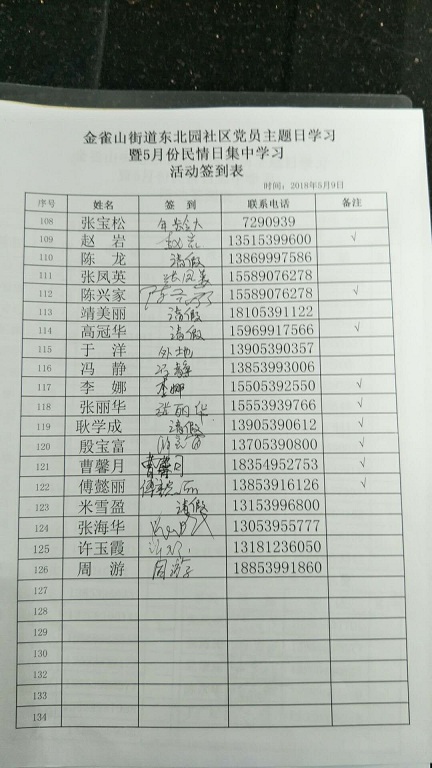 金雀山街道东北园社区党员主题日学习
暨5月份民情日集中学习
活动签到表
时间：2018年5月9日
序号 姓名 签 到 联系电话 备注
108 张宝松 年龄大 7290939
109 赵 岩 赵岩 13515399600 √
110 陈 龙 请假 13869997586
111 张凤英 张凤英 15589076278
112 陈兴家 陈兴家 15589076278 √
113 靖美丽 请假 18105391122
114 高冠华 请假 15969917566 √
115 于 洋 外地 13905390357
116 冯 静 冯静 13853993006
117 李 娜 李娜 15505392550 √
118 张丽华 张丽华 15553939766 √
119 耿学成 请假 13905390612 √
120 殷宝富 殷宝富 13705390800 √
121 曹馨月 曹馨月 18354952753 √
122 傅懿丽 傅懿丽 13853916126 √
123 米雪盈 请假 13153996800
124 张海华 13053955777
125 许玉霞 13181236050
126 周 游 周游 18853991860
127
128
129
130
131
132
133
134